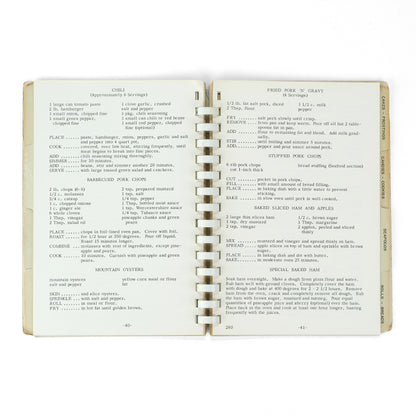 CHILI
(Approximately 6 Servings)
1 large can tomato paste
2 lb. hamburger
1 small onion, chopped fine
1 small green pepper,
chopped fine
1 clove garlic, crushed
salt and pepper
1 pkg. chili seasoning
1 small can chili or red beans
1 small red pepper, chopped
fine (optional)
PLACE ..... paste, hamburger, onion, peppers, garlic and salt
and pepper in pan.
COOK ...... covered, over low heat, stirring frequently, until
meat begins to separate and is done.
ADD ....... chili seasoning stirring thoroughly.
SIMMER .... for 20 minutes.
ADD ....... beans, stir and simmer another 20 minutes.
SERVE ..... with large tossed green salad and crackers.
BARBECUED PORK CHOPS
2 lb. chops (6-8)
1/2 c. molasses
3/4 c. catsup
1 c. chopped onions
1 c. ginger ale
6 whole cloves
1 Tbsp. vinegar
2 Tbsp. salad oil
2 tsp. prepared mustard
1 tsp. salt
1/4 tsp. pepper
1/4 tsp. Worcestershire sauce
pineapple chunks and green
peas
PLACE ..... chops in foil-lined oven pan. Cover with foil.
ROAST ..... for 1/2 hour at 350 degrees. Pour off liquid.
Roast 15 minutes longer.
COMBINE ... molasses with rest of ingredients, except pine-
apple and peas.
COOK ...... 10 minutes. Garnish with pineapple and green
peas.
MOUNTAIN OYSTERS
mountain oysters
salt and pepper
yellow corn meal or flour
fat
SKIN ...... and slice oysters,
SPRINKLE .. with salt and pepper,
ROLL ...... in meal or flour.
FRY ....... in hot fat until golden brown.
-40-
FRIED PORK 'N' GRAVY
(6 Servings)
1 1/2 lb. fat salt pork, sliced
2 Tbsp. flour
1 1/2 c. milk
pepper
FRY ....... salt pork slowly until crisp.
REMOVE .... from pan and keep warm. Pour off all but 2 table-
spoons fat in pan.
ADD ....... flour to remaining fat and blend. Add milk grad-
ually.
STIR ...... until boiling and simmer 5 minutes.
ADD ....... pepper and pour sauce around pork.
STUFFED PORK CHOPS
6 rib pork chops
cut 1-inch thick
bread stuffing
CUT ....... pocket in pork chops.
FILL ...... with small amount of bread stuffing.
PLACE ..... in baking dish with a little water to prevent
sticking.
BAKE ...... in slow oven until pork is well cooked.
BAKED SLICED HAM AND APPLES
2 large thin slices ham
1 tsp. dry mustard
2 tsp. vinegar
1/2 c. brown sugar
2 apples, peeled and sliced
thinly
MIX ....... mustard and vinegar and spread thinly on ham.
SPREAD .... apple slices on top of ham and sprinkle with brown
sugar.
PLACE ..... in baking dish and dot with butter.
BAKE ...... in moderate oven 25 minutes.
SPECIAL BAKED HAM
Soak ham overnight. Make a dough from plain flour and water.
Rub ham well with ground cloves. Completely cover the ham
with dough and bake at 400 degrees for 2 - 2 1/2 hours. Remove
ham from the oven, crack and completely remove all dough. Rub
the ham with brown sugar, mustard and nutmeg. Pour equal
quantities of pineapple juice and sherry (optional) over the ham.
Place back in the oven and cook at least one hour longer, basting
frequently with the juices.
285
-41-
CAKES - FROSTINGS
CANDIES - COOKIES
ROLLS - BREADS